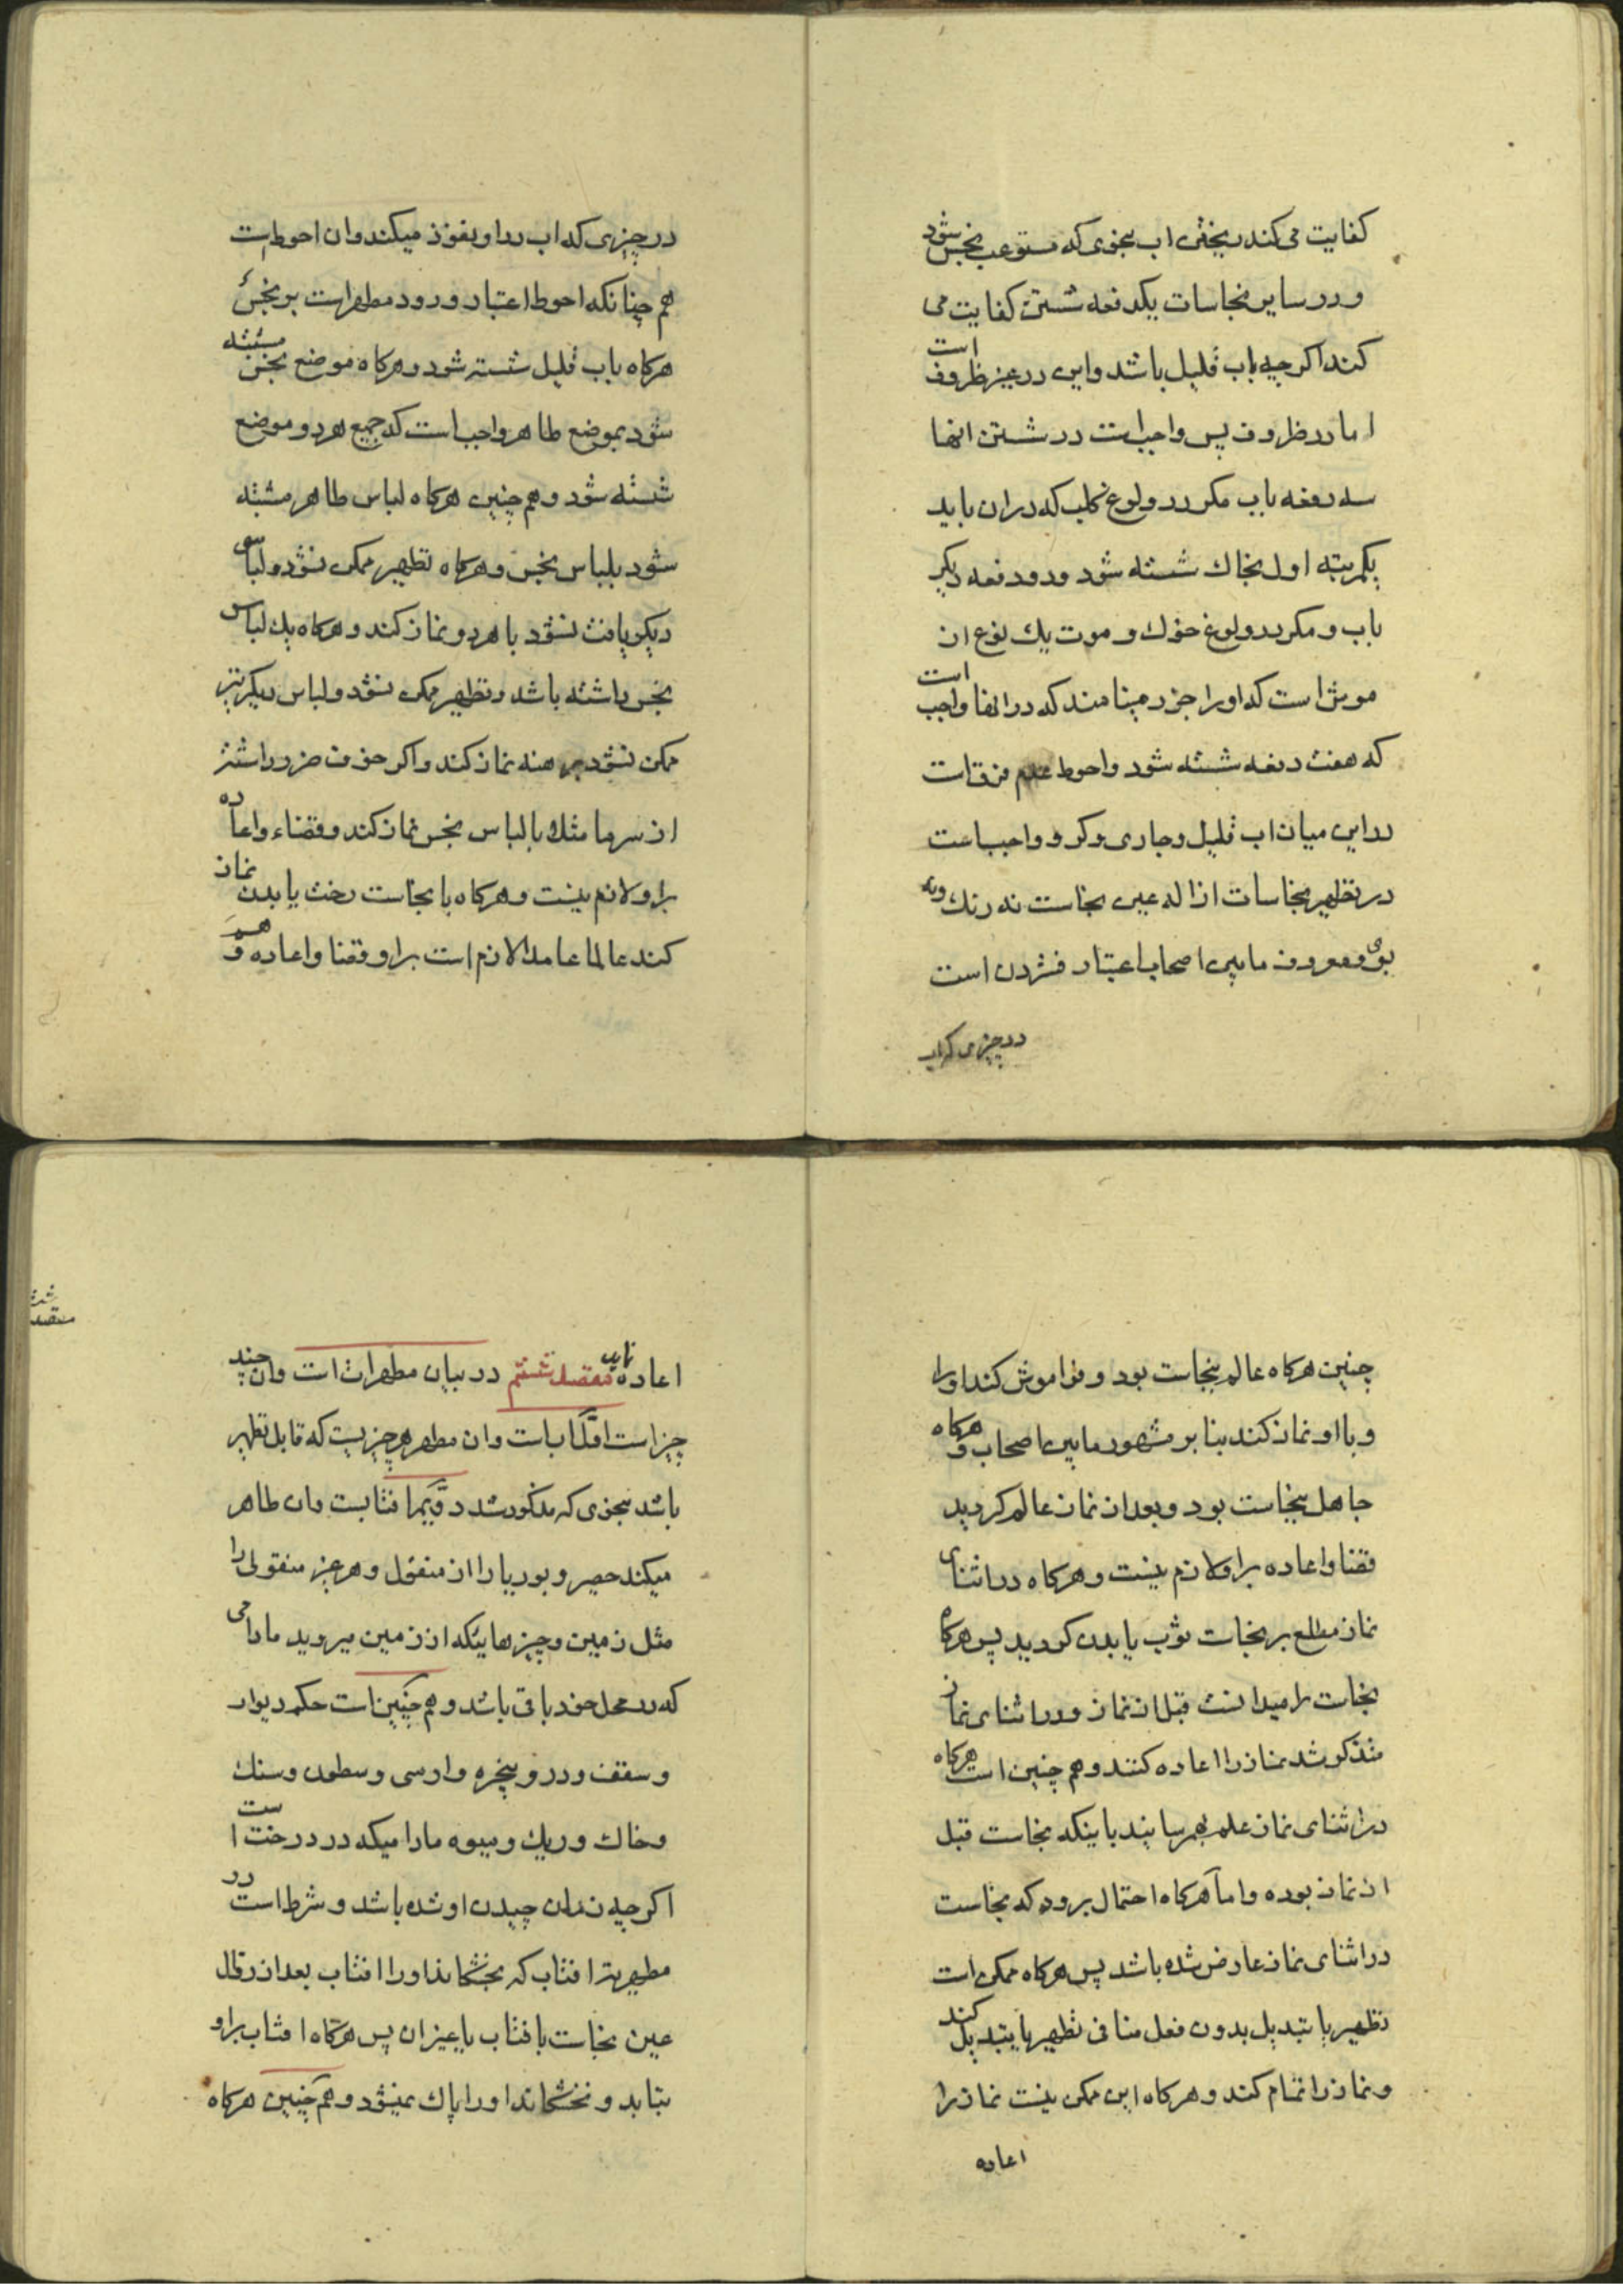 کفایت می کند ریختن اب بنحوی که مستوعب نجس شود
و در سایر نجاسات یکدفعه شستن کفایت می
کند اگر چه باب قلیل باشد و این در غیر ظروف است
اما در ظروف پس واجبست در شستن انها
سه دفعه باب مکر در ولوغ کلب که در ان باید
یکمرتبه اول بخاک شسته شود و دو دفعه دیگر
باب و مکر در ولوغ خوک و موت یک نوع از
موش است که او را جرز مینامند که در انها واجب است
که هفت دفعه شسته شود و احوط عدم فرق است
در این میان اب قلیل و جاری و کر و واجب است
در تطهیر نجاسات ازاله عین نجاست نه رنک و نه
بوی و معروف مابین اصحاب اعتبار فشردن است
در چیزی که اب
در چیزی که اب در او نفوذ میکند و ان احوط است
هم چنانکه احوط اعتبار ورود مطهر است بر نجس
هرکاه باب قلیل شسته شود و هرکاه موضع نجس مشتبه
شود بموضع طاهر واجب است که جمیع هر دو موضع
شسته شود و هم چنین هرکاه لباس طاهر مشتبه
شود بلباس نجس و هرکاه تطهیر ممکن نشود و لباسی
دیکر یافت نشود با هر دو نماز کند و هرکاه یک لباس
نجس داشته باشد و تطهیر ممکن نشود و لباس دیکر نیز
ممکن نشود برهنه نماز کند و اکر خوف ضرر داشته
از سرما مثلا با لباس نجس نماز کند و قضاء و اعاده
بر او لازم نیست و هرکاه با نجاست رخت یا بدن نماز
کند عالما عامدا لازم است بر او قضا و اعاده و هم
چنین هرکاه عالم بنجاست بود و فراموش کند او را
و با او نماز کند بنا بر مشهور مابین اصحاب و هرکاه
جاهل بنجاست بود و بعد از نماز عالم کردید
قضا و اعاده بر او لازم نیست و هرکاه در اثنای
نماز مطلع بر نجاست ثوب یا بدن کردید پس هرکاه
نجاست را میدانست قبل از نماز و در اثنای نماز
متذکر شد نماز را اعاده کنند و هم چنین است هرکاه
در اثنای نماز علم بهرسانید باینکه نجاست قبل
از نماز بوده و اما هرکاه احتمال برود که نجاست
در اثنای نماز عارض شده باشد پس هرکاه ممکن است
تطهیر یا تبدیل بدون فعل منافی تطهیر یا تبدیل کند
و نماز را تمام کند و هرکاه این ممکن نیست نماز را
اعاده
اعاده نماید مقصد ششم در بیان مطهرات است و ان چند
چیز است اول اب است و ان مطهر هر چیزیست که قابل تطهیر
باشد بنحوی که مذکور شد دویم افتابست و ان طاهر
میکند حصیر و بوریا را از منقول و هر غیر منقولی را
مثل زمین و چیزهاییکه از زمین میروید مادامی
که در محل خود باقی باشد و هم چنین است حکم دیوار
و سقف و در و پنجره و ارسی و سطون و سنک
و خاک و ریک و میوه مادامیکه در درخت است
اکر چه زمان چیدن او شده باشد و شرط است در
مطهریت افتاب که بخشکاند او را افتاب بعد از زوال
عین نجاست با فتاب یا غیر ان پس هرکاه افتاب بر او
بتابد و نخشکاند او را پاک نمیشود و هم چنین هرکاه